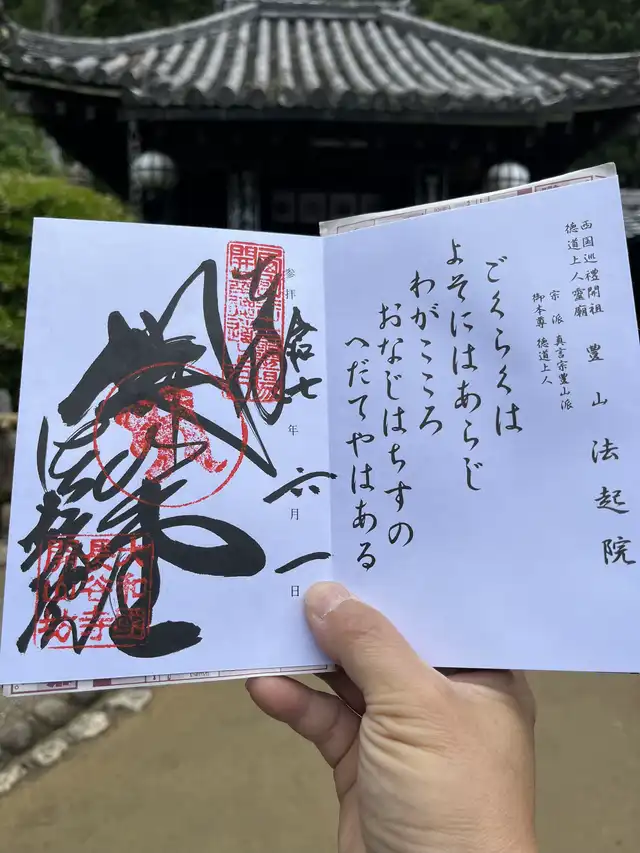 西国巡禮開祖
徳道上人靈廟
豊山 法起院
宗派 真言宗豊山派
御本尊 徳道上人
ごくらくは
よそにはあらじ
わがこころ
おなじはちすの
へだてやはある
参拝 令和七年六月一日
奉拝
法起院
大和国
長谷寺
開山坊